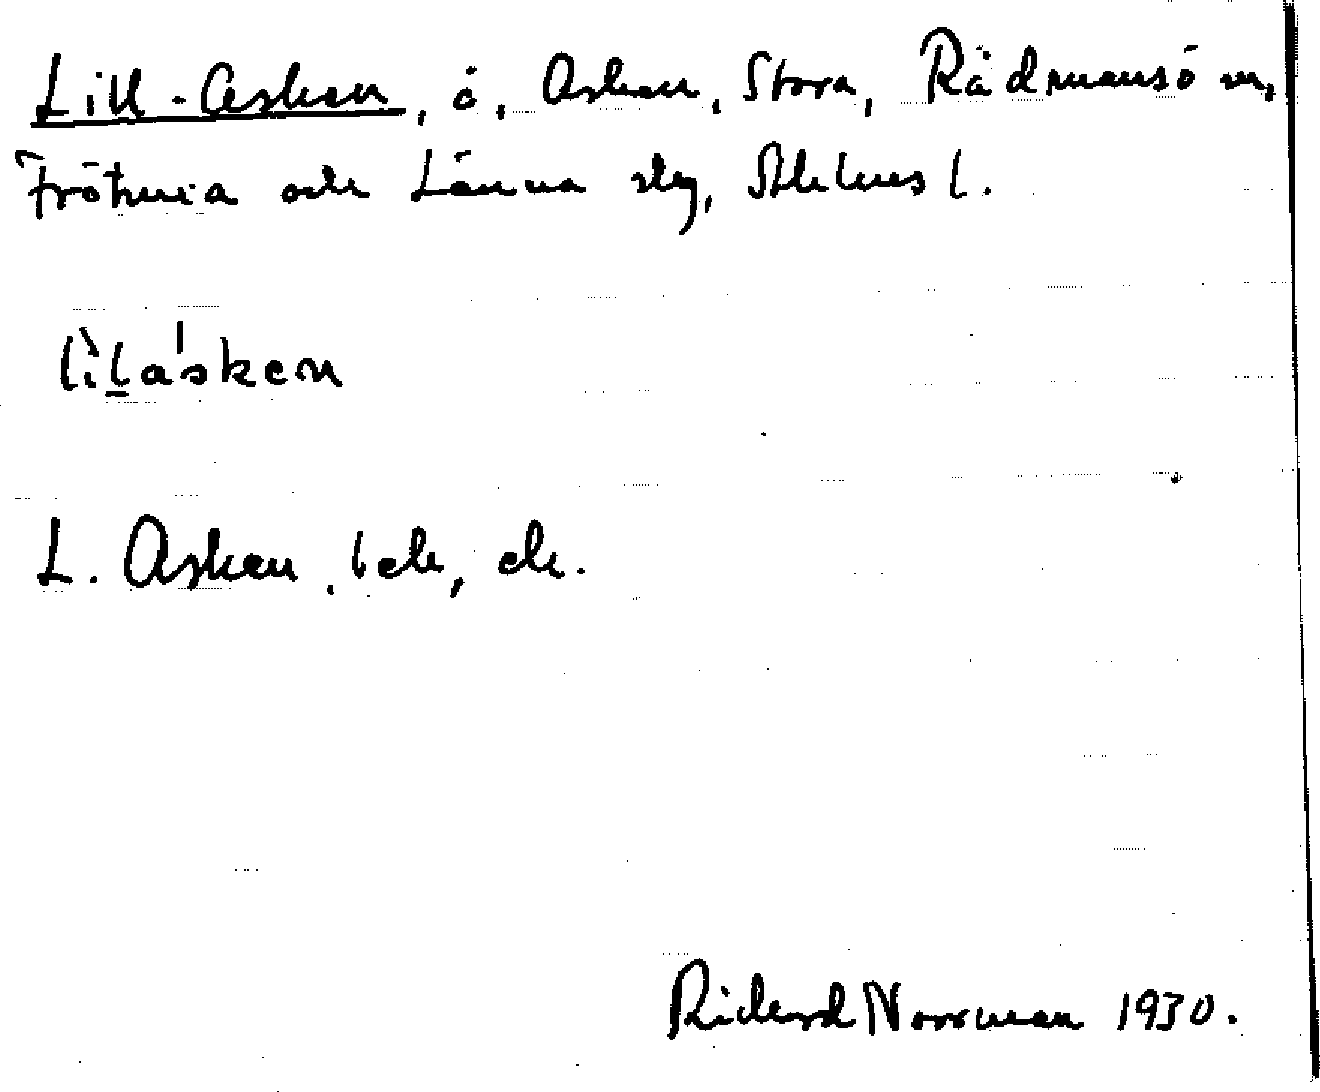 Lill-Asken, ö, Asken, Stora, Rådmansö m,
Frötuna och Länna slg, Sthlms l.
lìlaˈsken
L. Asken, lek, ek.
Richard Norrman 1930.